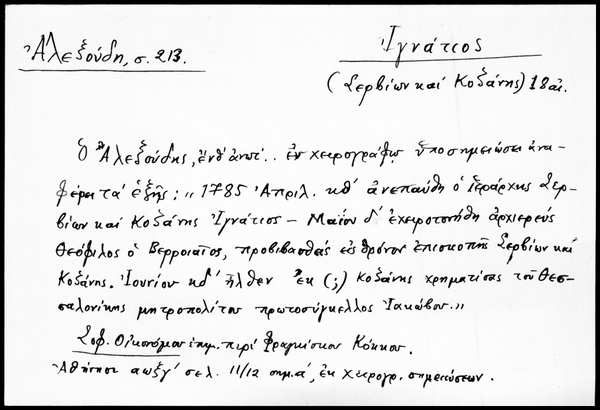 Ἀλεξούδη, σ. 213.
Ἰγνάτιος
(Σερβίων καί Κοζάνης) 18 αἰ.
Ὁ Ἀλεξούδης, ἔνθ' ἀνωτ. . ἐν χειρογράφῳ ὑποσημειώσει ἀνα-
φέρει τά ἑξῆς: „1785 Ἀπριλ. κθ' ἀνεπαύθη ὁ ἱεράρχης Σερ-
βίων καί Κοζάνης Ἰγνάτιος – Μαΐου δ' ἐχειροτονήθη ἀρχιερεύς
Θεόφιλος ὁ Βερροιαῖος, προβιβασθείς εἰς θρόνον ἐπισκοπῆς Σερβίων καί
Κοζάνης. Ἰουνίου κδ' ἦλθεν ἐκ (;) Κοζάνης χρηματίσας τοῦ Θεσ-
σαλονίκης μητροπολίτου πρωτοσύγκελλος Ἰακώβου.„
Σοφ. Οἰκονόμου περί Φραγκίσκου Κόκκου.
Ἀθήνησι αωξγ' σελ. 11/12 σημ. α', ἐκ χειρογρ. σημειώσεων.